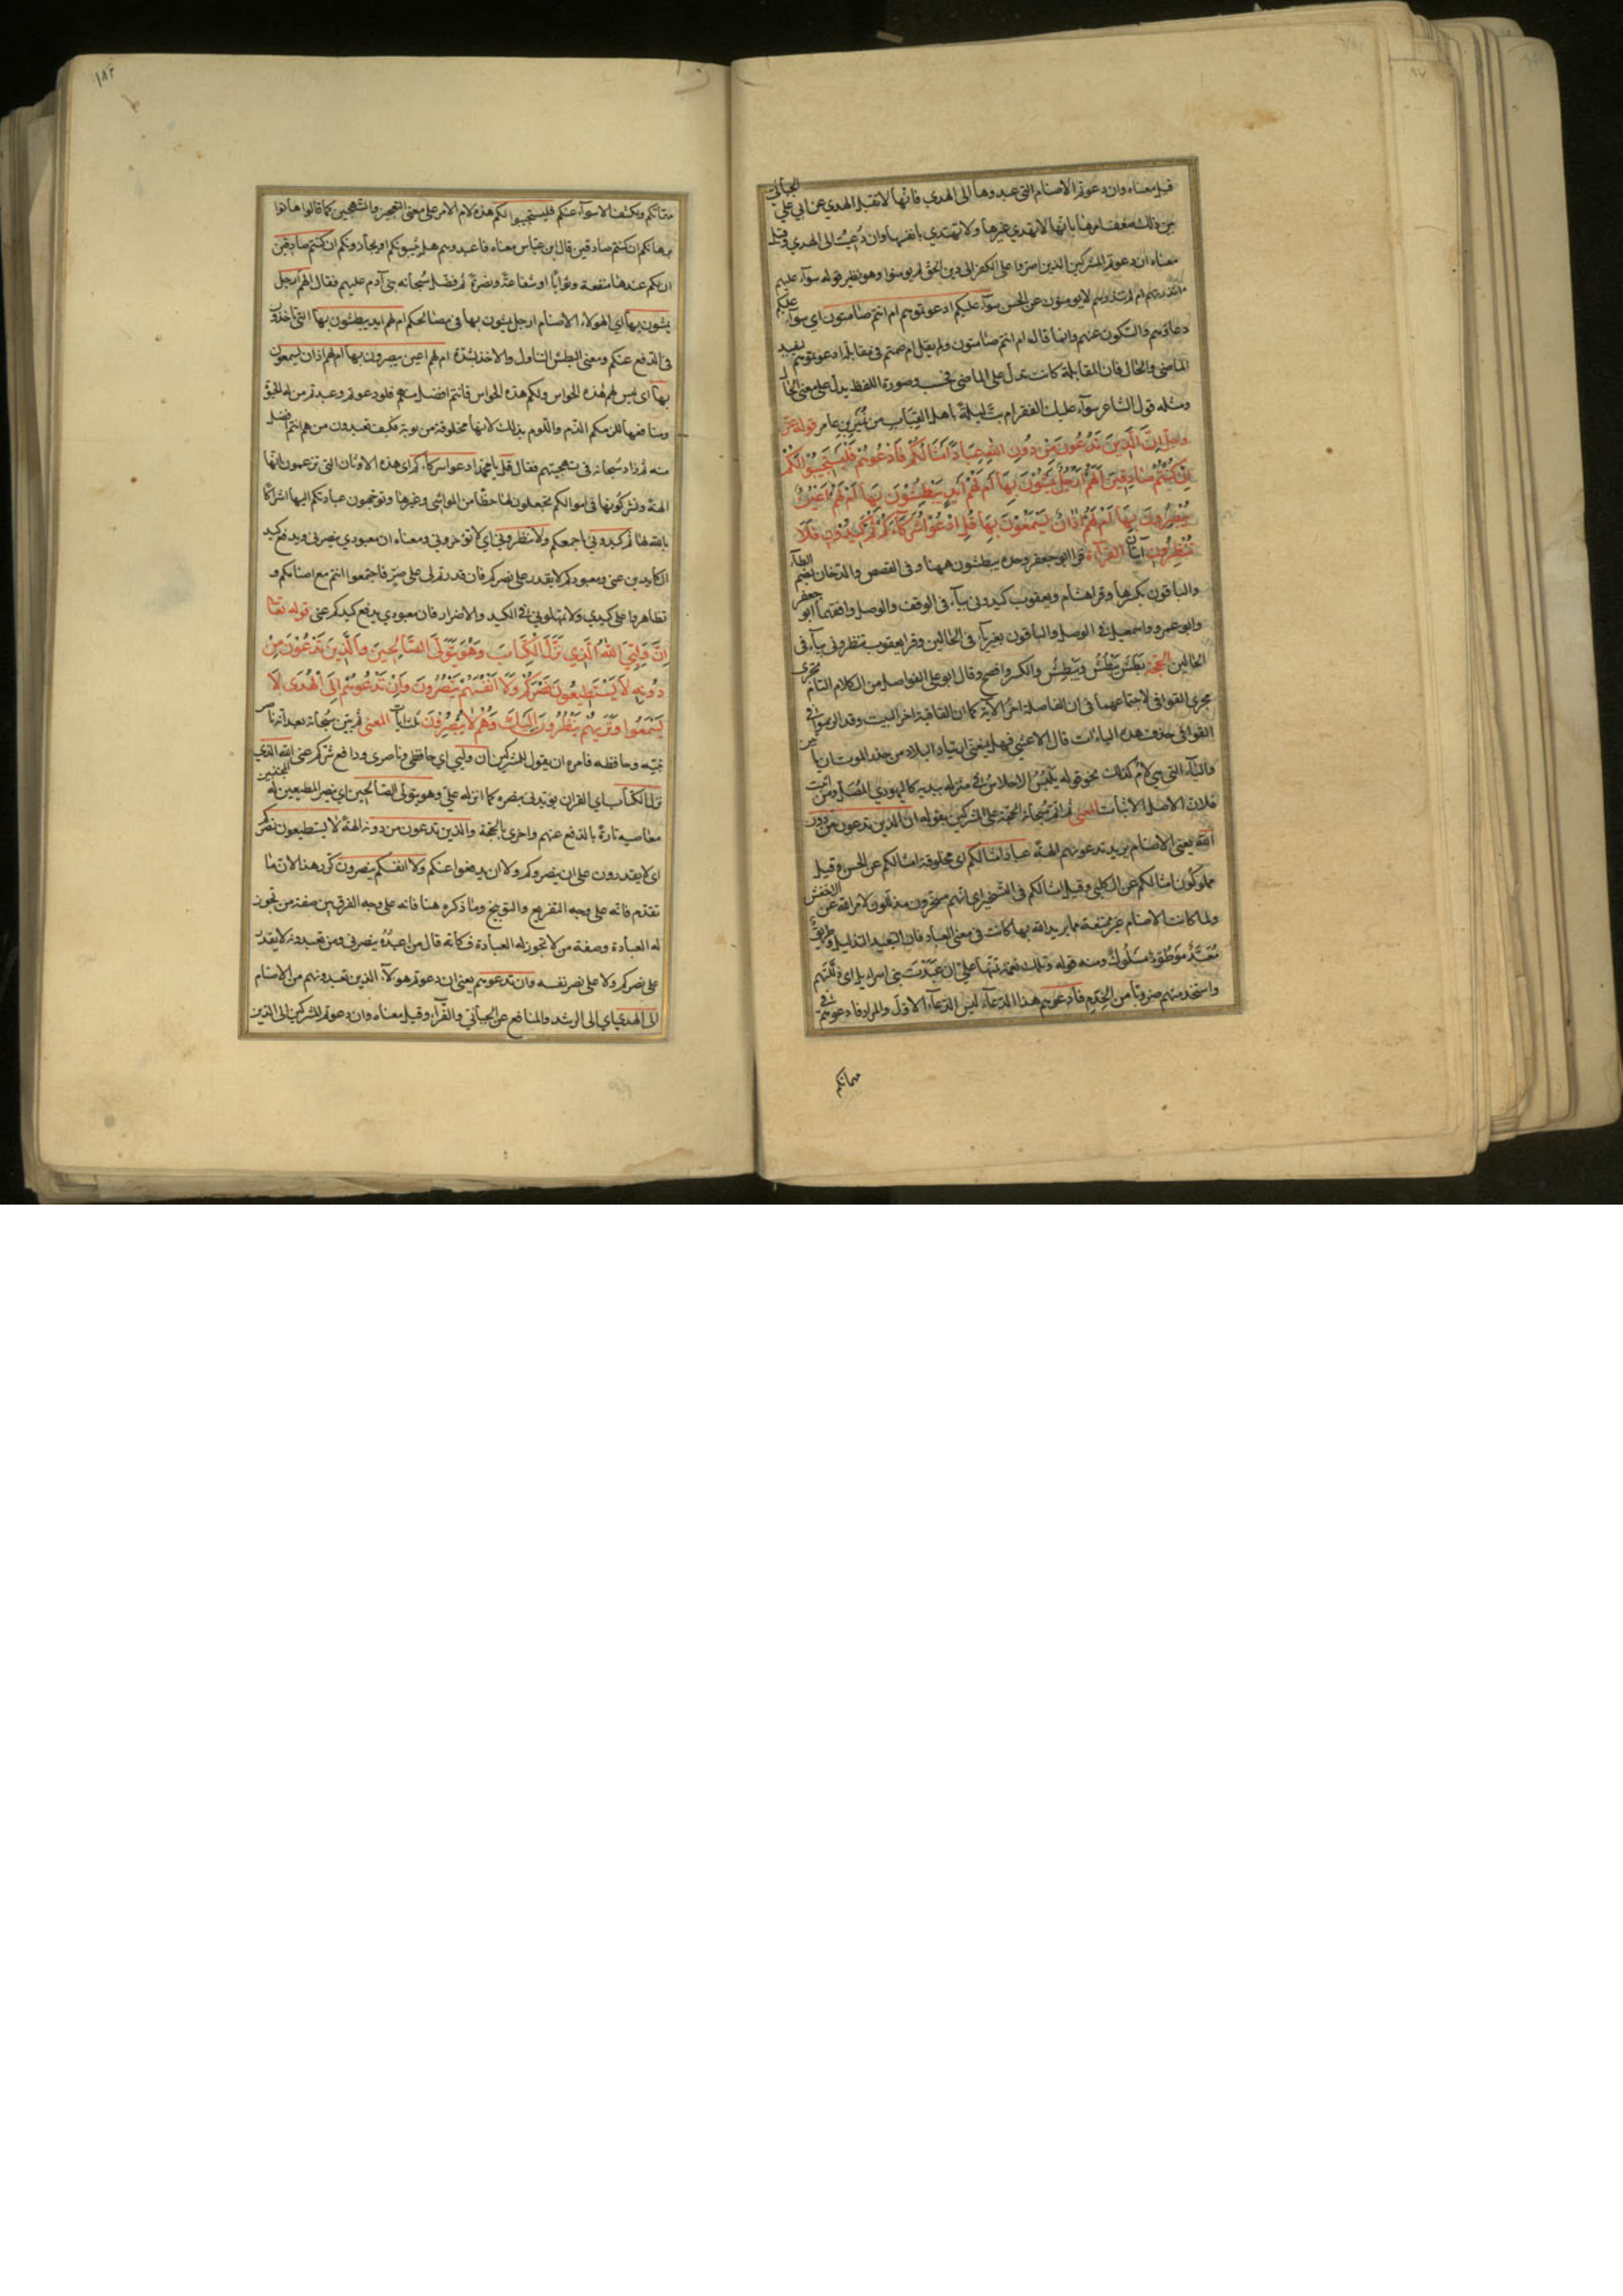 قيل معناه وان دعوتم الاصنام التى عبدوها الى الهدى فانها لا تقبل الهدي عن ابي علي الجبائي
بين ذلك ضعف امرها بانها لا تهدي غيرها ولا تهتدي بانفسها وان دُعيت الى الهدي وقيل
معناه ان دعوتم المشركين الذين اصروا على الكفر الى دين الحق لم يومنوا وهو نظير قوله سوآء عليهم
ءانذرتهم ام لم تنذرهم لا يومنون عن الحسن سوآء عليكم ادعوتموهم ام انتم صامتون اي سوآء عليكم
دعاؤهم والسكوت عنهم وانما قال ام انتم صامتون ولم يقل ام صمتم فى مقابلة ادعوتموهم ليفيد
الماضى والحال فان المقابلة كانت تدل على الماضى فحسب وصورة اللفظ يدل على معنى الحال
ومثله قول الشاعر سوآء عليك الفقر ام بتّ ليلة باهل القباب من نمير بن عامر قوله عز
وجل اِنَّ الَّذِينَ تَدْعُونَ مِنْ دُونِ اللهِ عِبَادٌ اَمْثَالُكُمْ فَادْعُوهُمْ فَلْيَسْتَجِيبُوا لَكُمْ
اِنْ كُنْتُمْ صَادِقِينَ اَلَهُمْ اَرْجُلٌ يَمْشُونَ بِهَا اَمْ لَهُمْ اَيْدٍ يَبْطِشُونَ بِهَا اَمْ لَهُمْ اَعْيُنٌ
يُبْصِرُونَ بِهَا اَمْ لَهُمْ اٰذَانٌ يَسْمَعُونَ بِهَا قُلِ ادْعُوا شُرَكَآءَكُمْ ثُمَّ كِيدُونِ فَلَا
تُنْظِرُونِ آيتان القرآءة قرا ابو جعفر وحده يبطشون ههنا وفى القصص والدخان بضم الطآء
والباقون بكسرها وقرا هشام ويعقوب كيدونى بيآء فى الوقف والوصل وافقهما ابو جعفر
وابو عمرو واسمعيل فى الوصل والباقون بغير يآء فى الحالين وقرا يعقوب تنظرونى بيآء فى
الحالين الحجة بَطَشَ يَبْطُشُ ويَبْطِشُ والكسر افصح وقال ابو علي الفواصل من الكلام التام تجرى
مجرى القوافى لاجتماعهما فى ان الفاصلة اخر الآية كما ان القافية اخر البيت وقد الزموا فى
القوافى حذف هذه الياءات قال الاعشى فهل يمنعنى ارتياد البلاد من حذر الموت ان ياتين
واليآء التى هي لام كذلك نحو قوله يلمس الاحلاس فى منزله بيديه كاليهودي المُصَل ومن اثبت
فلان الاصل الاثبات المعنى ثم اتم سُبحانه الحجة على المشركين بقوله ان الذين تدعون من دون
الله يعنى الاصنام يريد تدعونهم الهة عباد امثالكم اى مخلوقة امثالكم عن الحسن وقيل
مملوكُون امثالكم عن الكلبي وقيل امثالكم فى التسخير اى انهم مسخرون مذللون لامر الله عن الاخفش
ولما كانت الاصنام غير ممتنعة مما يريد الله بها كانت فى معنى العباد فان التعبيد التذليل وطريق
مُعَبَّدٌ مَوْطُوٌ مَسْلُوكٌ ومنه قوله وتلك نعمة تمنّها عليّ ان عَبَّدْتَ بنى اسرايل اى ذللتهم
واستخدمتهم ضروبًا من الخِدَم فادعوهم هذا الدعآء ليس الدعآء الاول والمراد فادعوهم فى
مهماتكم
١٨٢
مهماتكم ويكشف الاسوآء عنكم فليستجيبوا لكم هذه لام الامر على معنى التعجيز والتهجين كما قال هاتوا
برهانكم ان كنتم صادقين قال ابن عباس معناه فاعبدوهم هل يثيبونكم او يجازونكم ان كنتم صادقين
ان لكم عندها منفعة وثوابًا او شفاعة ونصرة ثم فضل سُبحانه بنى آدم عليهم فقال الهم ارجل
يمشون بها اي الهولاء الاصنام ارجل يمشون بها فى مصالحكم ام لهم ايد يبطشون بها التى تاخذون
فى الدفع عنكم ومعنى البطش التناول والاخذ بشدة ام لهم اعين يبصرون بها ام لهم اذان يسمعون
بها اى ليس لهم هذه الحواس ولكم هذه الحواس فانتم افضل منهم فلو دعوتم وعبدتم من له الحيوة
ومنافعها للزمكم الذم واللوم بذلك لانها مخلوقة مربوبة فكيف تعبدون من هم انتم افضل
منه ثم زاد سُبحانه فى تهجينهم فقال قل يا محمد ادعوا شركآءكم اى هذه الاوثان التى تزعمون انها
الهة وتشركونها فى اموالكم بجعلون لها حظا من المواشى وغيرها وتوجهون عبادتكم اليها اشراكا
بالله لها ثم كيدونى باجمعكم ولا تنظرونى اى لا تؤخرونى ومعناه ان معبودي ينصرنى ويدفع كيد
الكايدين عنى ومعبودكم لا يقدر على نصركم فان قدرتم لى على ضرّ فاجتمعوا انتم مع اصنامكم و
تظاهروا على كيدي ولا تمهلونى فى الكيد والاضرار فان معبودي يدفع كيدكم عنى قوله تعالى
اِنَّ وَلِيِّيَ اللهُ الَّذِي نَزَّلَ الْكِتَابَ وَهُوَ يَتَوَلَّى الصَّالِحِينَ وَالَّذِينَ تَدْعُونَ مِنْ
دُونِهِ لَا يَسْتَطِيعُونَ نَصْرَكُمْ وَلَا اَنْفُسَهُمْ يَنْصُرُونَ وَاِنْ تَدْعُوهُمْ اِلَى الْهُدَى لَا
يَسْمَعُوا وَتَرَيهُمْ يَنْظُرُونَ اِلَيْكَ وَهُمْ لَا يُبْصِرُونَ ثلث آيات المعنى ثم بين سُبحانه بعد انه ناصر
نبيه وحافظه فامره ان يقول للمشركين ان وليي اي حافظى وناصرى ودافع شركم عنى الله الذي
نزل الكتاب اي القران يؤيدنى بنصره كما انزله علي وهو يتولى الصالحين اى ينصر المطيعين له المجتنبين
معاصيه تارة بالدفع عنهم واخرى بالحجة والذين تدعون من دونه الهة لا يستطيعون نصركم
اى لا يقدرون على ان ينصروكم ولا ان يدفعوا عنكم ولا انفسكم ينصرون كرر هذا لان ما
تقدم فانه على وجه التقريع والتوبيخ وما ذكره هنا فانه على وجه الفرق بين صفة من تجوز
له العبادة وصفة من لا تجوز له العبادة فكانه قال من اعبُدُه ينصرنى ومن تعبدونه لا يقدر
على نصركم ولا على نصر نفسه وان تدعوهم يعنى ان دعوتم هولآء الذين تعبدونهم من الاصنام
الى الهدي اي الى الرشد والمنافع عن الجبائي والفرآء وقيل معناه وان دعوتم المشركين الى الدين